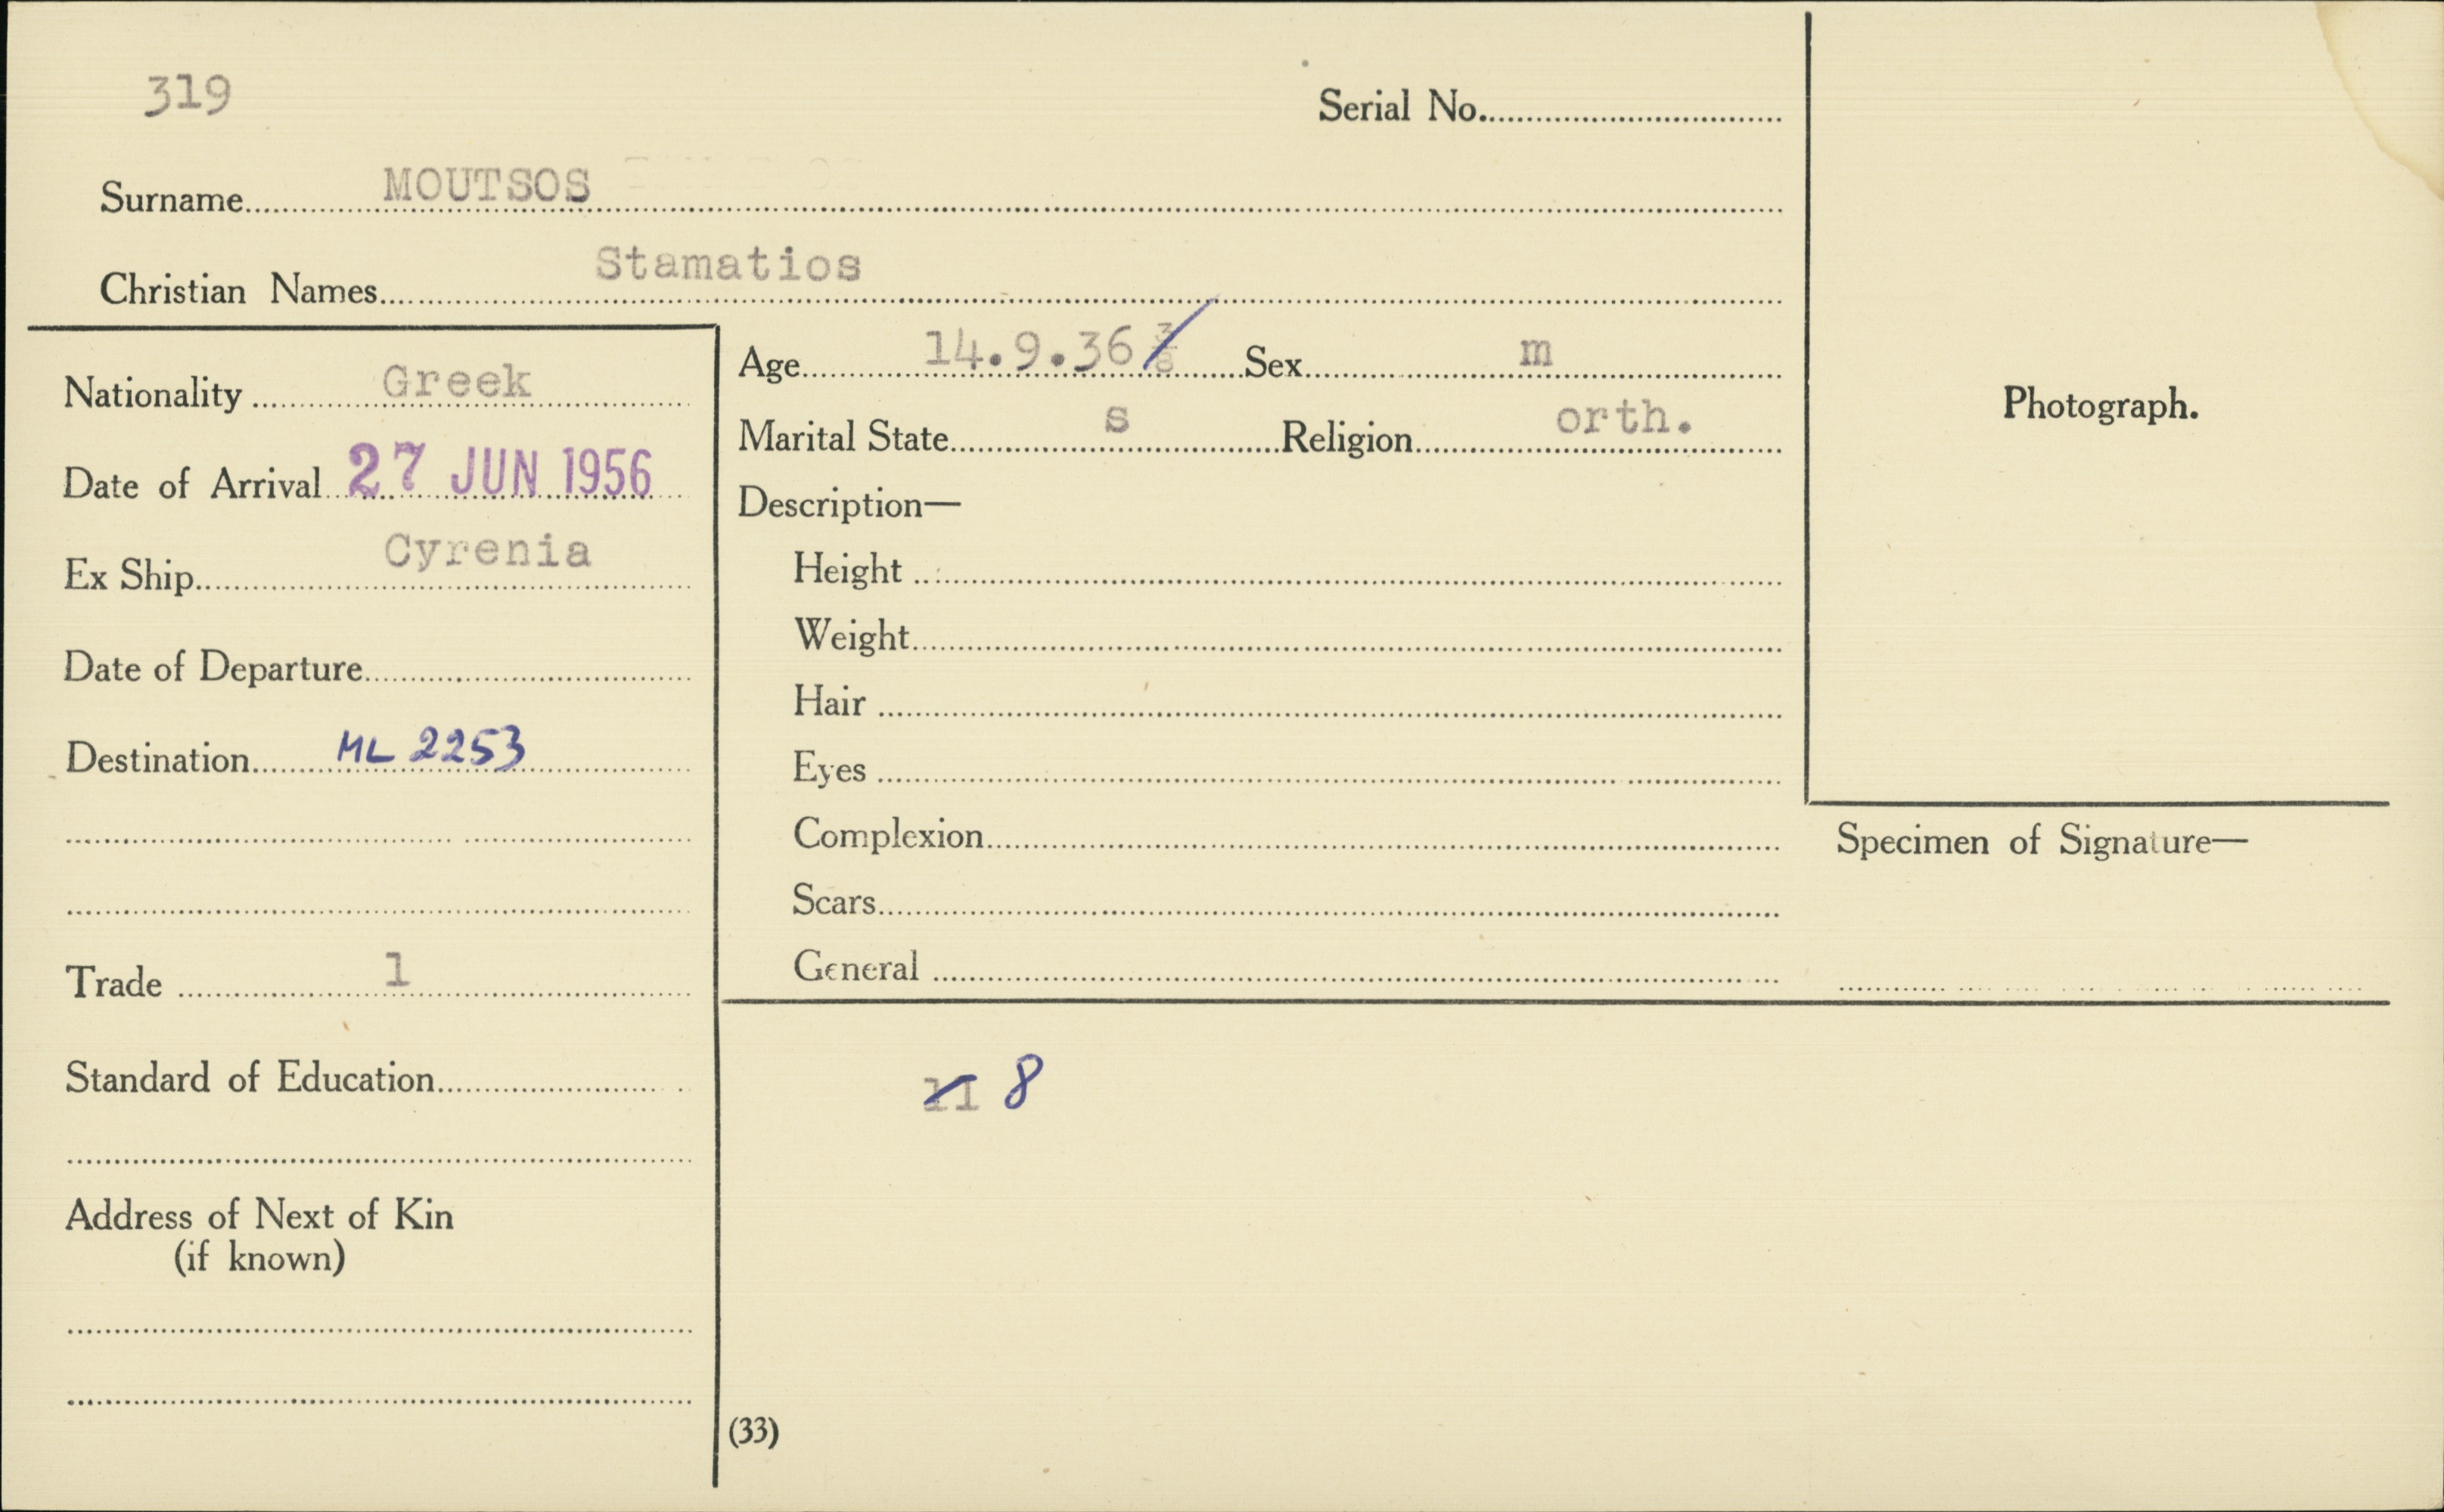 319
Serial No.
Surname MOUTSOS
Christian Names Stamatios
Nationality Greek
Date of Arrival 27 JUN 1956
Ex Ship Cyrenia
Date of Departure
Destination ML 2253
Trade 1
Standard of Education
Address of Next of Kin
(if known)
Age 14.9.36 Sex m
Marital State s Religion orth.
Description—
Height
Weight
Hair
Eyes
Complexion
Scars
General
Photograph.
Specimen of Signature—
11 8
(33)